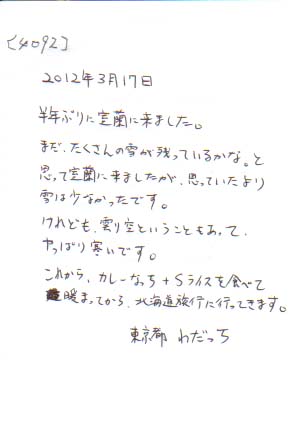 [4092]
2012年3月17日
半年ぶりに室蘭に来ました。
まだ、たくさんの雪が残っているかな。と
思って室蘭に来ましたが、思っていたより
雪は少なかったです。
けれども、曇り空ということもあって、
やっぱり寒いです。
これから、カレーなっち+Sライスを食べて
暖まってから、北海道旅行に行ってきます。
東京都 わだっち